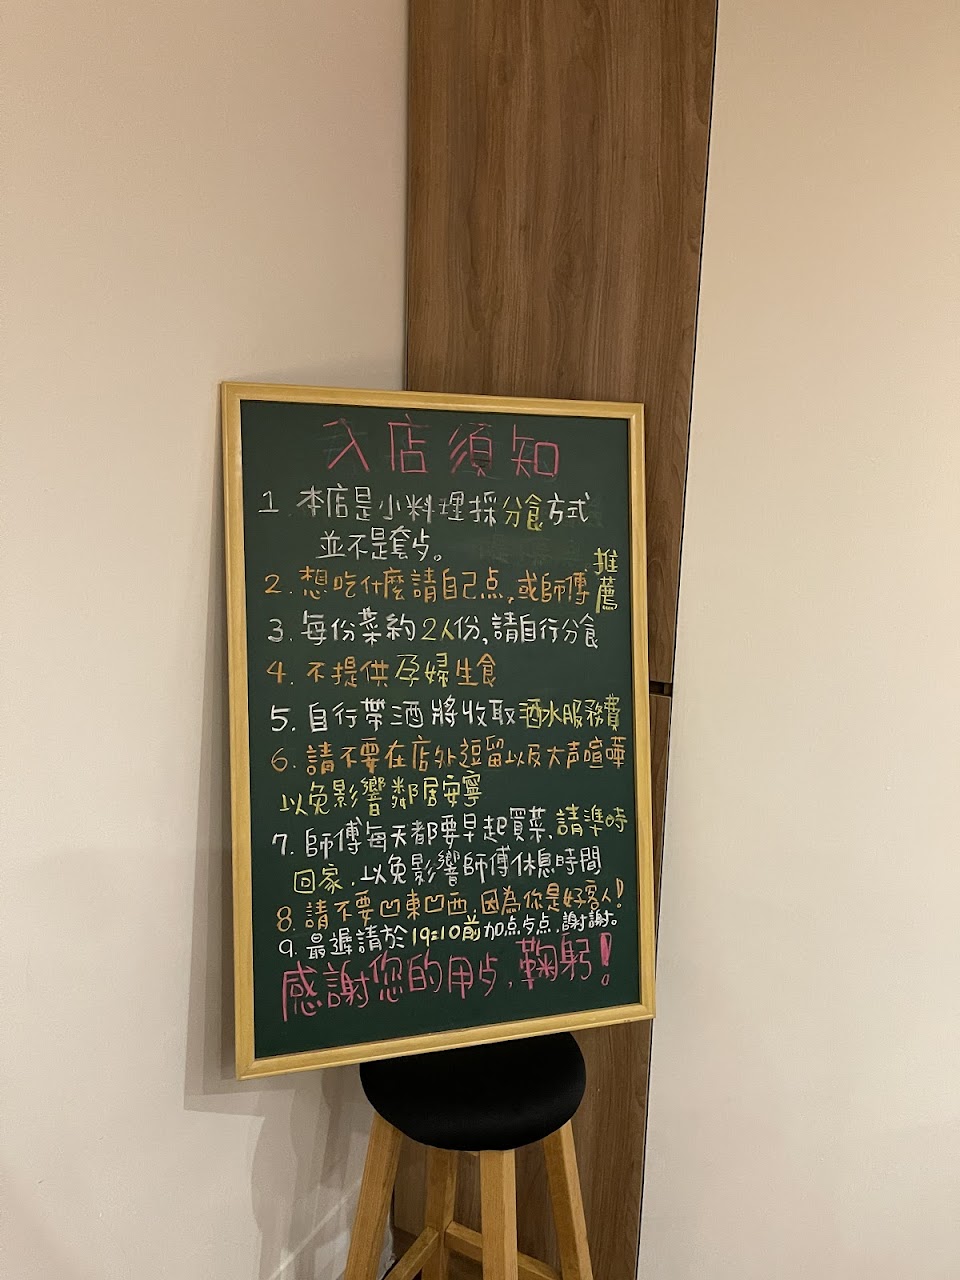 入店須知
1 本店是小料理採分食方式
並不是套歺。
2. 想吃什麼請自己点,或師傅推薦
3. 每份菜約2人份,請自行分食
4. 不提供孕婦生食
5. 自行帶酒將收取酒水服務費
6. 請不要在店外逗留以及大声喧嘩
以免影響鄰居安寧
7. 師傅每天都要早起買菜,請準時
回家,以免影響師傅休息時間
8. 請不要凹東凹西,因為你是好客人!
9. 最遲請於19:10前加点歺点,謝謝。
感謝您的用歺,鞠躬!